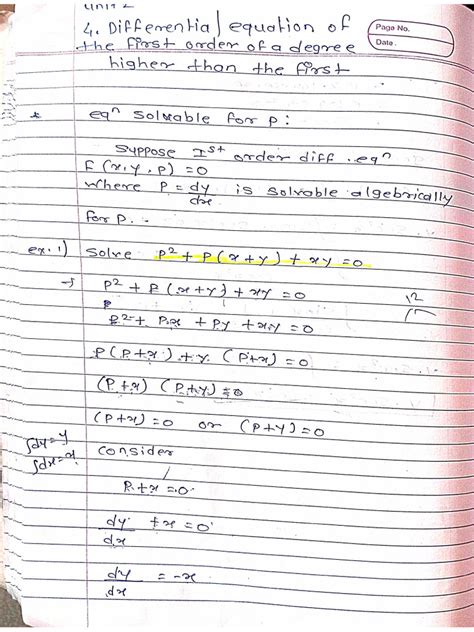 Unit 2
4. Differential equation of
the first order of a degree
higher than the first
Page No.
Date.
* eqⁿ solvable for p:
Suppose Iˢᵗ order diff. eqⁿ
F(x, y, p) = 0
where p = dy/dx is solvable algebrically
for p.
ex. 1) Solve p² + p(x+y) + xy = 0
→ p² + p(x+y) + xy = 0
12
p² + px + py + xy = 0
p(p+x) + y(p+x) = 0
(p+x)(p+y) = 0
(p+x) = 0 or (p+y) = 0
∫dy = y
∫dx = x
consider
p + x = 0
dy/dx + x = 0
dy/dx = -x